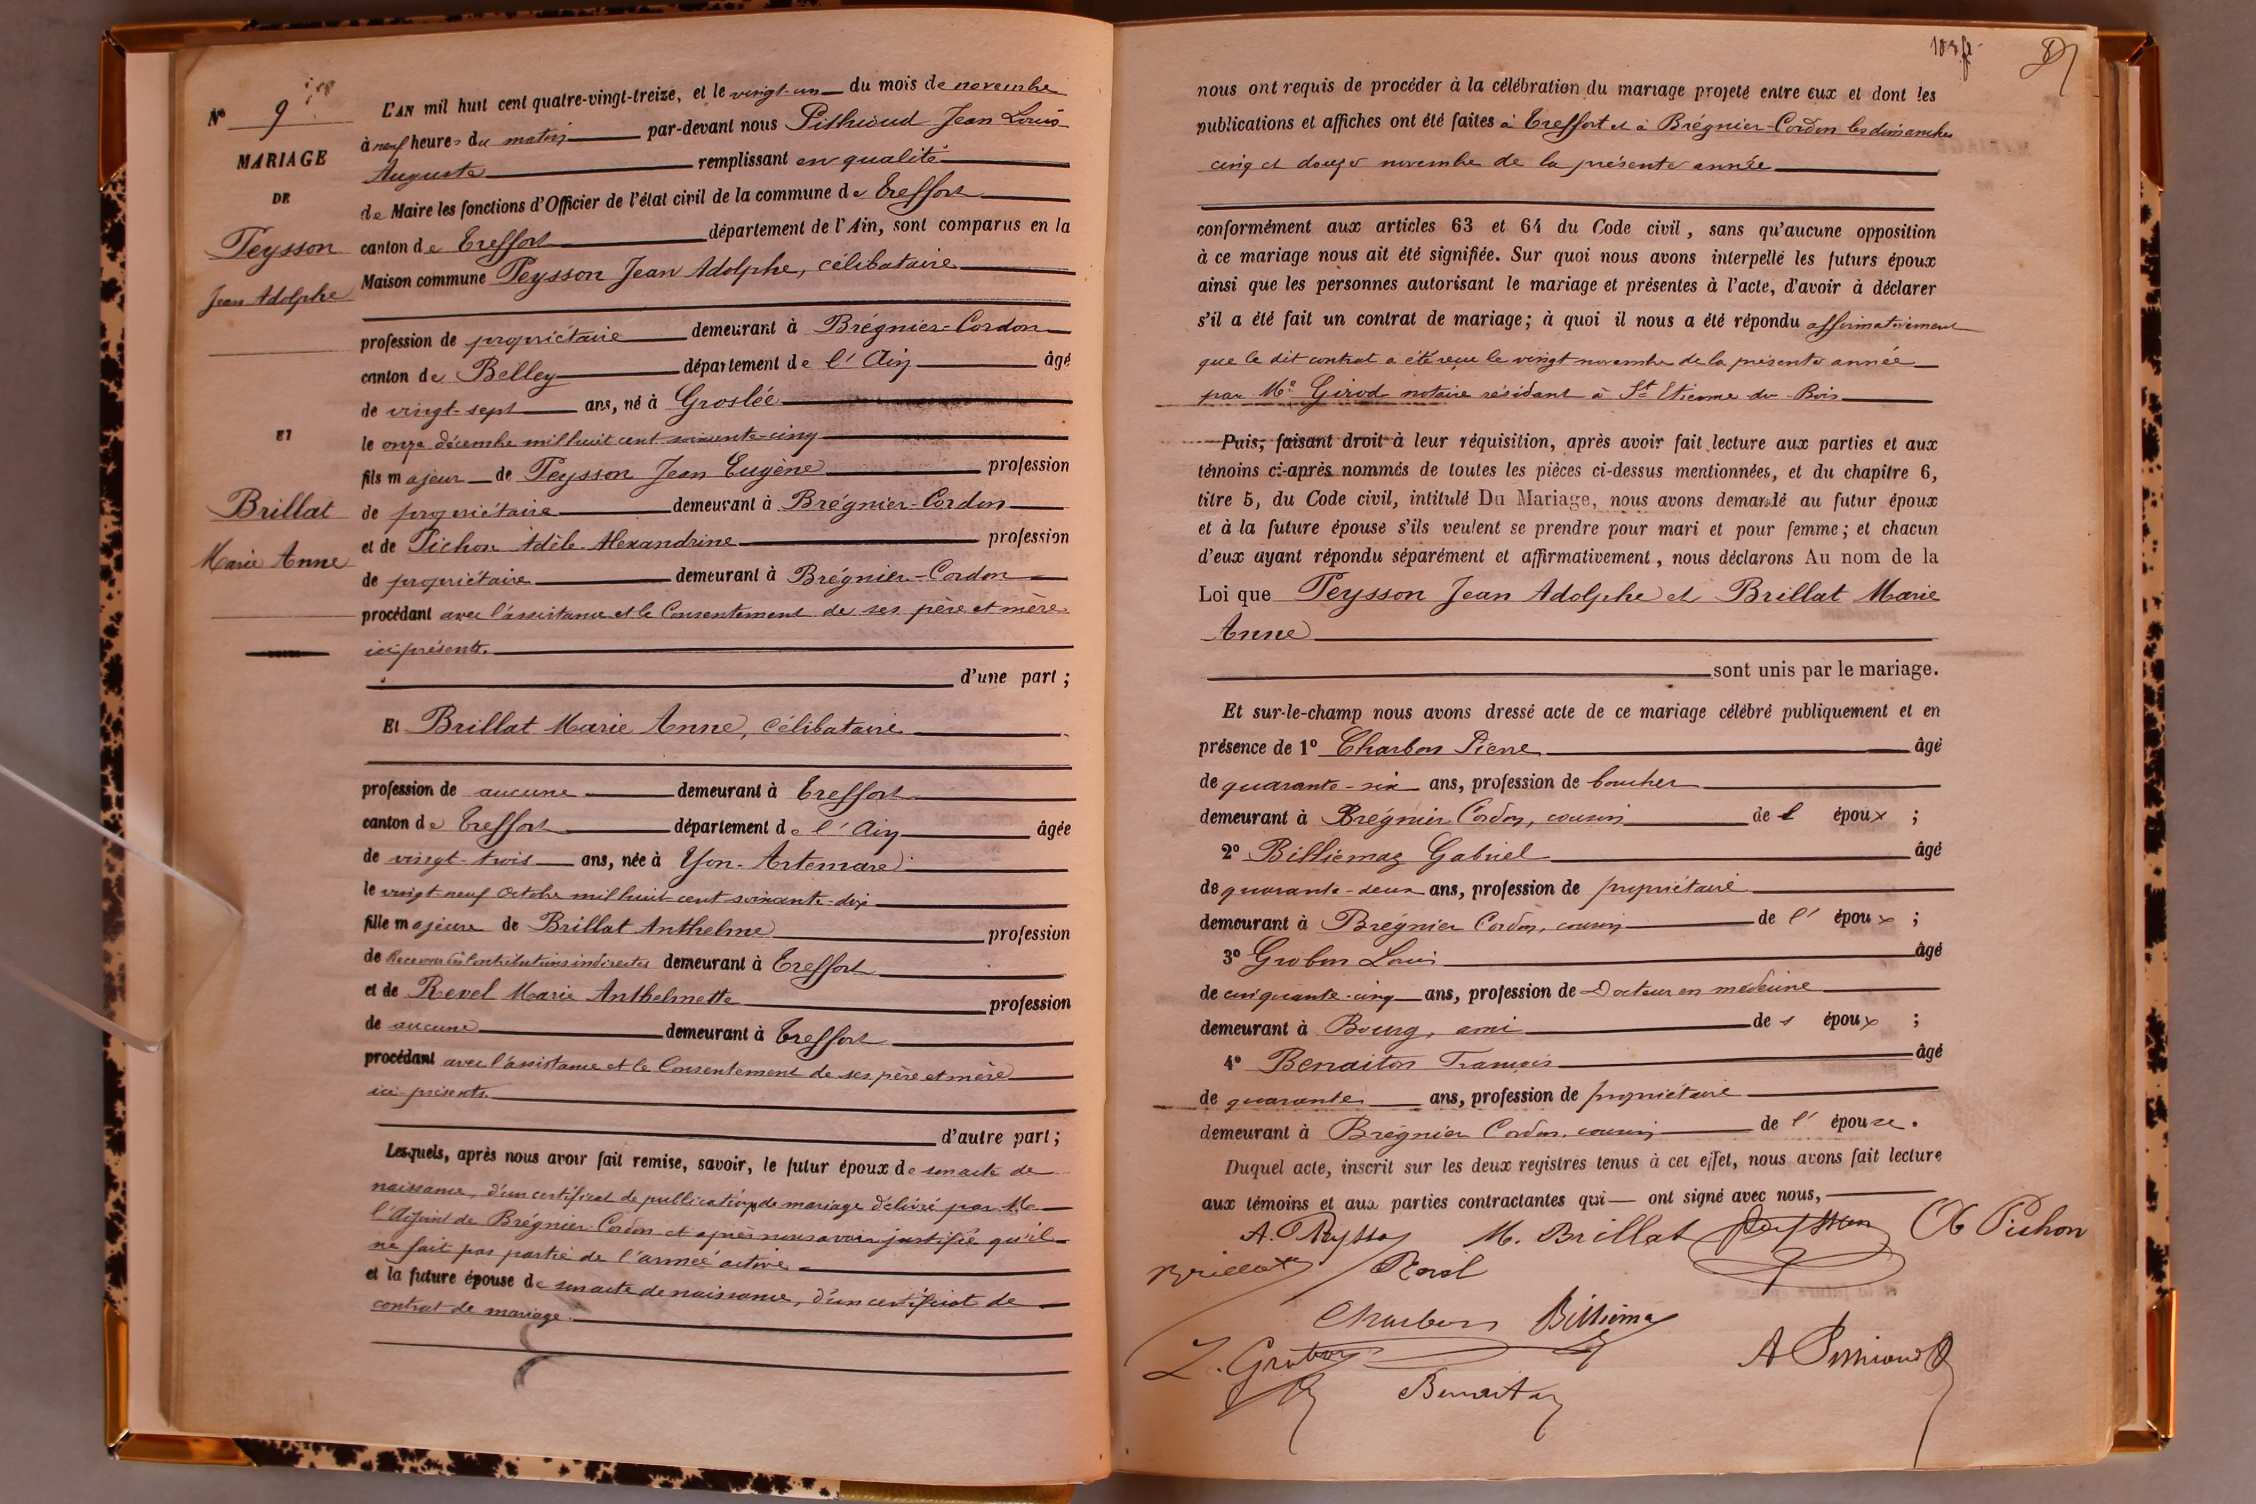 N° 9
MARIAGE
DE
Peysson
Jean Adolphe
ET
Brillat
Marie Anne
L'AN mil huit cent quatre-vingt-treize, et le vingt-un du mois de novembre
à neuf heures du matin par-devant nous Pithioud Jean Louis
Auguste remplissant en qualité
de Maire les fonctions d'Officier de l'état civil de la commune de Treffort
canton de Treffort département de l'Ain, sont comparus en la
Maison commune Peysson Jean Adolphe, célibataire
profession de propriétaire demeurant à Brégnier-Cordon
canton de Belley département de l'Ain âgé
de vingt-sept ans, né à Groslée
le onze décembre mil huit cent soixante-cinq
fils majeur de Peysson Jean Eugène profession
de propriétaire demeurant à Brégnier-Cordon
et de Pichon Adèle Alexandrine profession
de propriétaire demeurant à Brégnier-Cordon
procédant avec l'assistance et le Consentement de ses père et mère
ici présents.
d'une part ;
Et Brillat Marie Anne, célibataire
profession de aucune demeurant à Treffort
canton de Treffort département de l'Ain âgée
de vingt-trois ans, née à Yon-Artemare
le vingt-neuf Octobre mil huit cent soixante-dix
fille majeure de Brillat Anthelme profession
de Receveur des Contributions indirectes demeurant à Treffort
et de Revel Marie Anthelmette profession
de aucune demeurant à Treffort
procédant avec l'assistance et le Consentement de ses père et mère
ici présents.
d'autre part ;
Lesquels, après nous avoir fait remise, savoir, le futur époux de son acte de
naissance, d'un certificat de publication de mariage délivré par Mr
l'Adjoint de Brégnier-Cordon et après nous avoir justifié qu'il
ne fait pas partie de l'armée active
et la future épouse de son acte de naissance, d'un certificat de
contrat de mariage.
87
nous ont requis de procéder à la célébration du mariage projeté entre eux et dont les
publications et affiches ont été faites à Treffort et à Brégnier-Cordon les dimanches
cinq et douze novembre de la présente année
conformément aux articles 63 et 64 du Code civil, sans qu'aucune opposition
à ce mariage nous ait été signifiée. Sur quoi nous avons interpellé les futurs époux
ainsi que les personnes autorisant le mariage et présentes à l'acte, d'avoir à déclarer
s'il a été fait un contrat de mariage ; à quoi il nous a été répondu affirmativement
que le dit contrat a été reçu le vingt novembre de la présente année
par Me Girod notaire résidant à St Etienne du Bois
Puis, faisant droit à leur réquisition, après avoir fait lecture aux parties et aux
témoins ci-après nommés de toutes les pièces ci-dessus mentionnées, et du chapitre 6,
titre 5, du Code civil, intitulé Du Mariage, nous avons demandé au futur époux
et à la future épouse s'ils veulent se prendre pour mari et pour femme ; et chacun
d'eux ayant répondu séparément et affirmativement, nous déclarons Au nom de la
Loi que Peysson Jean Adolphe et Brillat Marie
Anne
sont unis par le mariage.
Et sur-le-champ nous avons dressé acte de ce mariage célébré publiquement et en
présence de 1° Charbon Pierre âgé
de quarante-six ans, profession de boucher
demeurant à Brégnier Cordon, cousin de l époux ;
2° Billiemaz Gabriel âgé
de quarante-deux ans, profession de propriétaire
demeurant à Brégnier Cordon, cousin de l' époux ;
3° Grobon Louis âgé
de cinquante-cinq ans, profession de Docteur en médecine
demeurant à Bourg, ami des époux ;
4° Benaiton François âgé
de quarante ans, profession de propriétaire
demeurant à Brégnier Cordon, cousin de l' épouse.
Duquel acte, inscrit sur les deux registres tenus à cet effet, nous avons fait lecture
aux témoins et aux parties contractantes qui ont signé avec nous,
A. Peysson M. Brillat Peysson Pichon
Brillat Revel
Charbon Billiemaz
L. Grobon A Pithioud
Benaiton